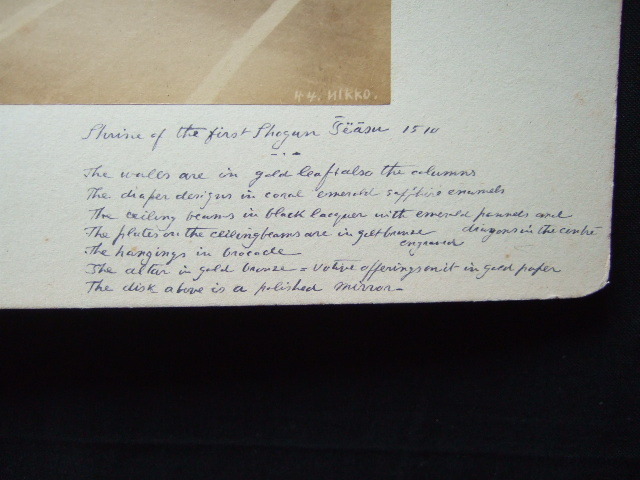 44. NIKKO.
Shrine of the first Shogun Īëāsu 1510
The walls are in gold leaf & also the columns
The diaper designs in coral emerald saffhire enamels
The ceiling beams in black lacquer with emerald pannels and
dragons in the centre
The plates on the ceiling beams are in gilt bronze
engraved
The hangings in brocade
The altar in gold bronze = votive offerings on it in gold paper
The disk above is a polished mirror -